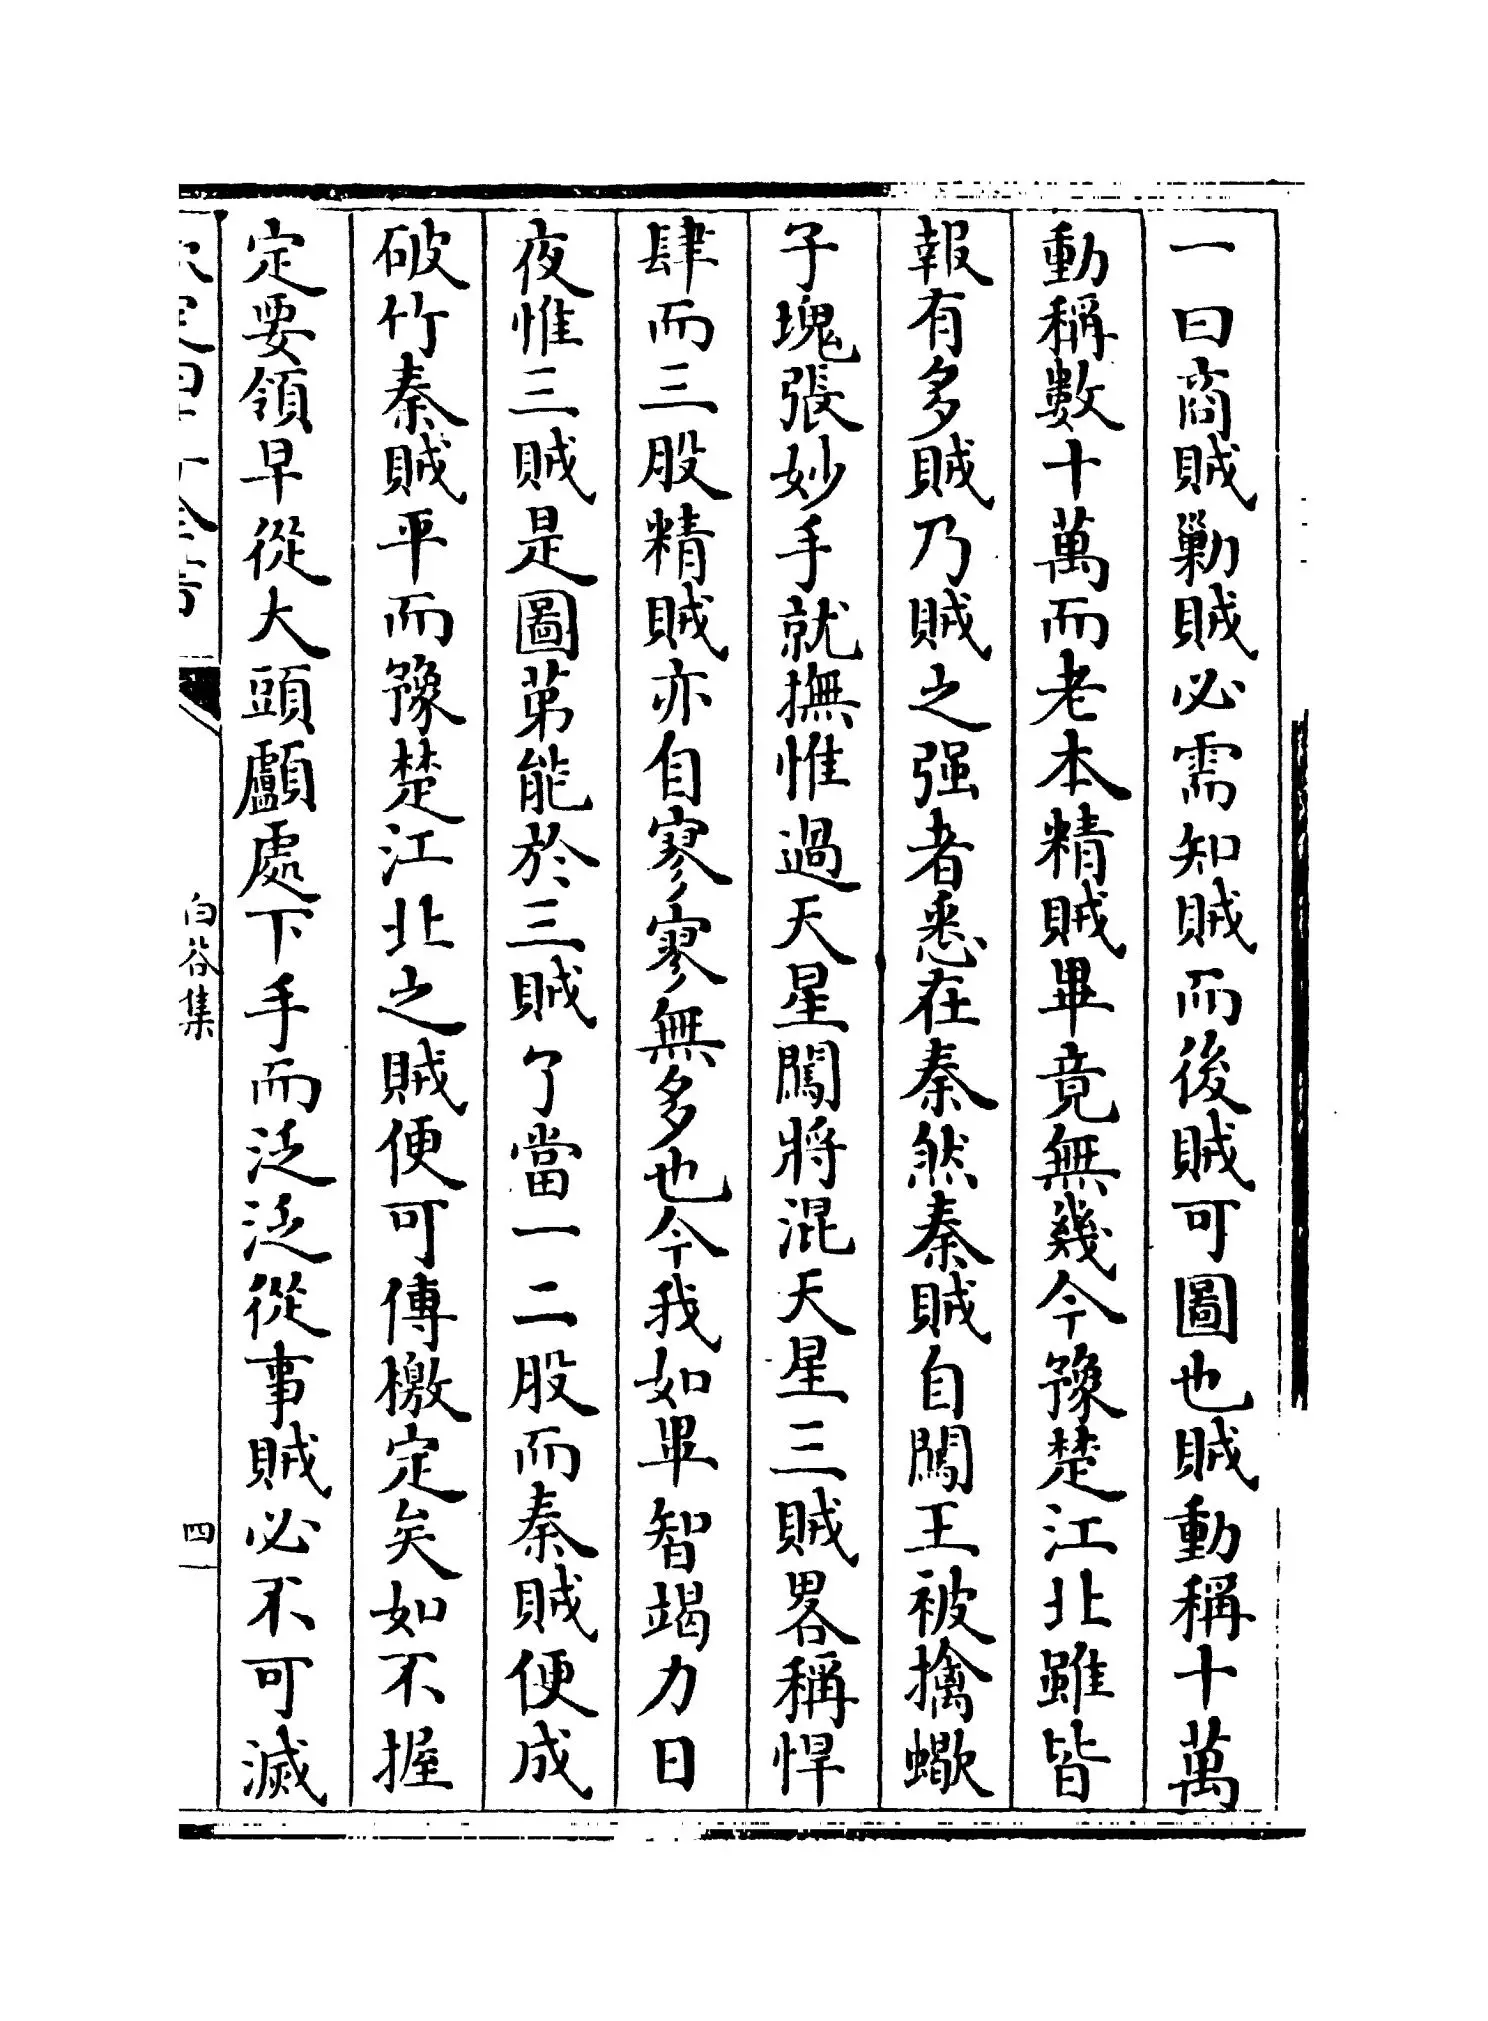 一曰商賊勦賊必需知賊而後賊可圖也賊動稱十萬
動稱數十萬而老本精賊畢竟無幾今豫楚江北雖皆
報有多賊乃賊之强者悉在秦然秦賊自闖王被擒蠍
子塊張妙手就撫惟過天星闖將混天星三賊畧稱悍
肆而三股精賊亦自寥寥無多也今我如畢智竭力日
夜惟三賊是圖苐能於三賊了當一二股而秦賊便成
破竹秦賊平而豫楚江北之賊便可傳檄定矣如不握
定要領早從大頭顱處下手而泛泛從事賊必不可滅
欽定四庫全書
白谷集
四